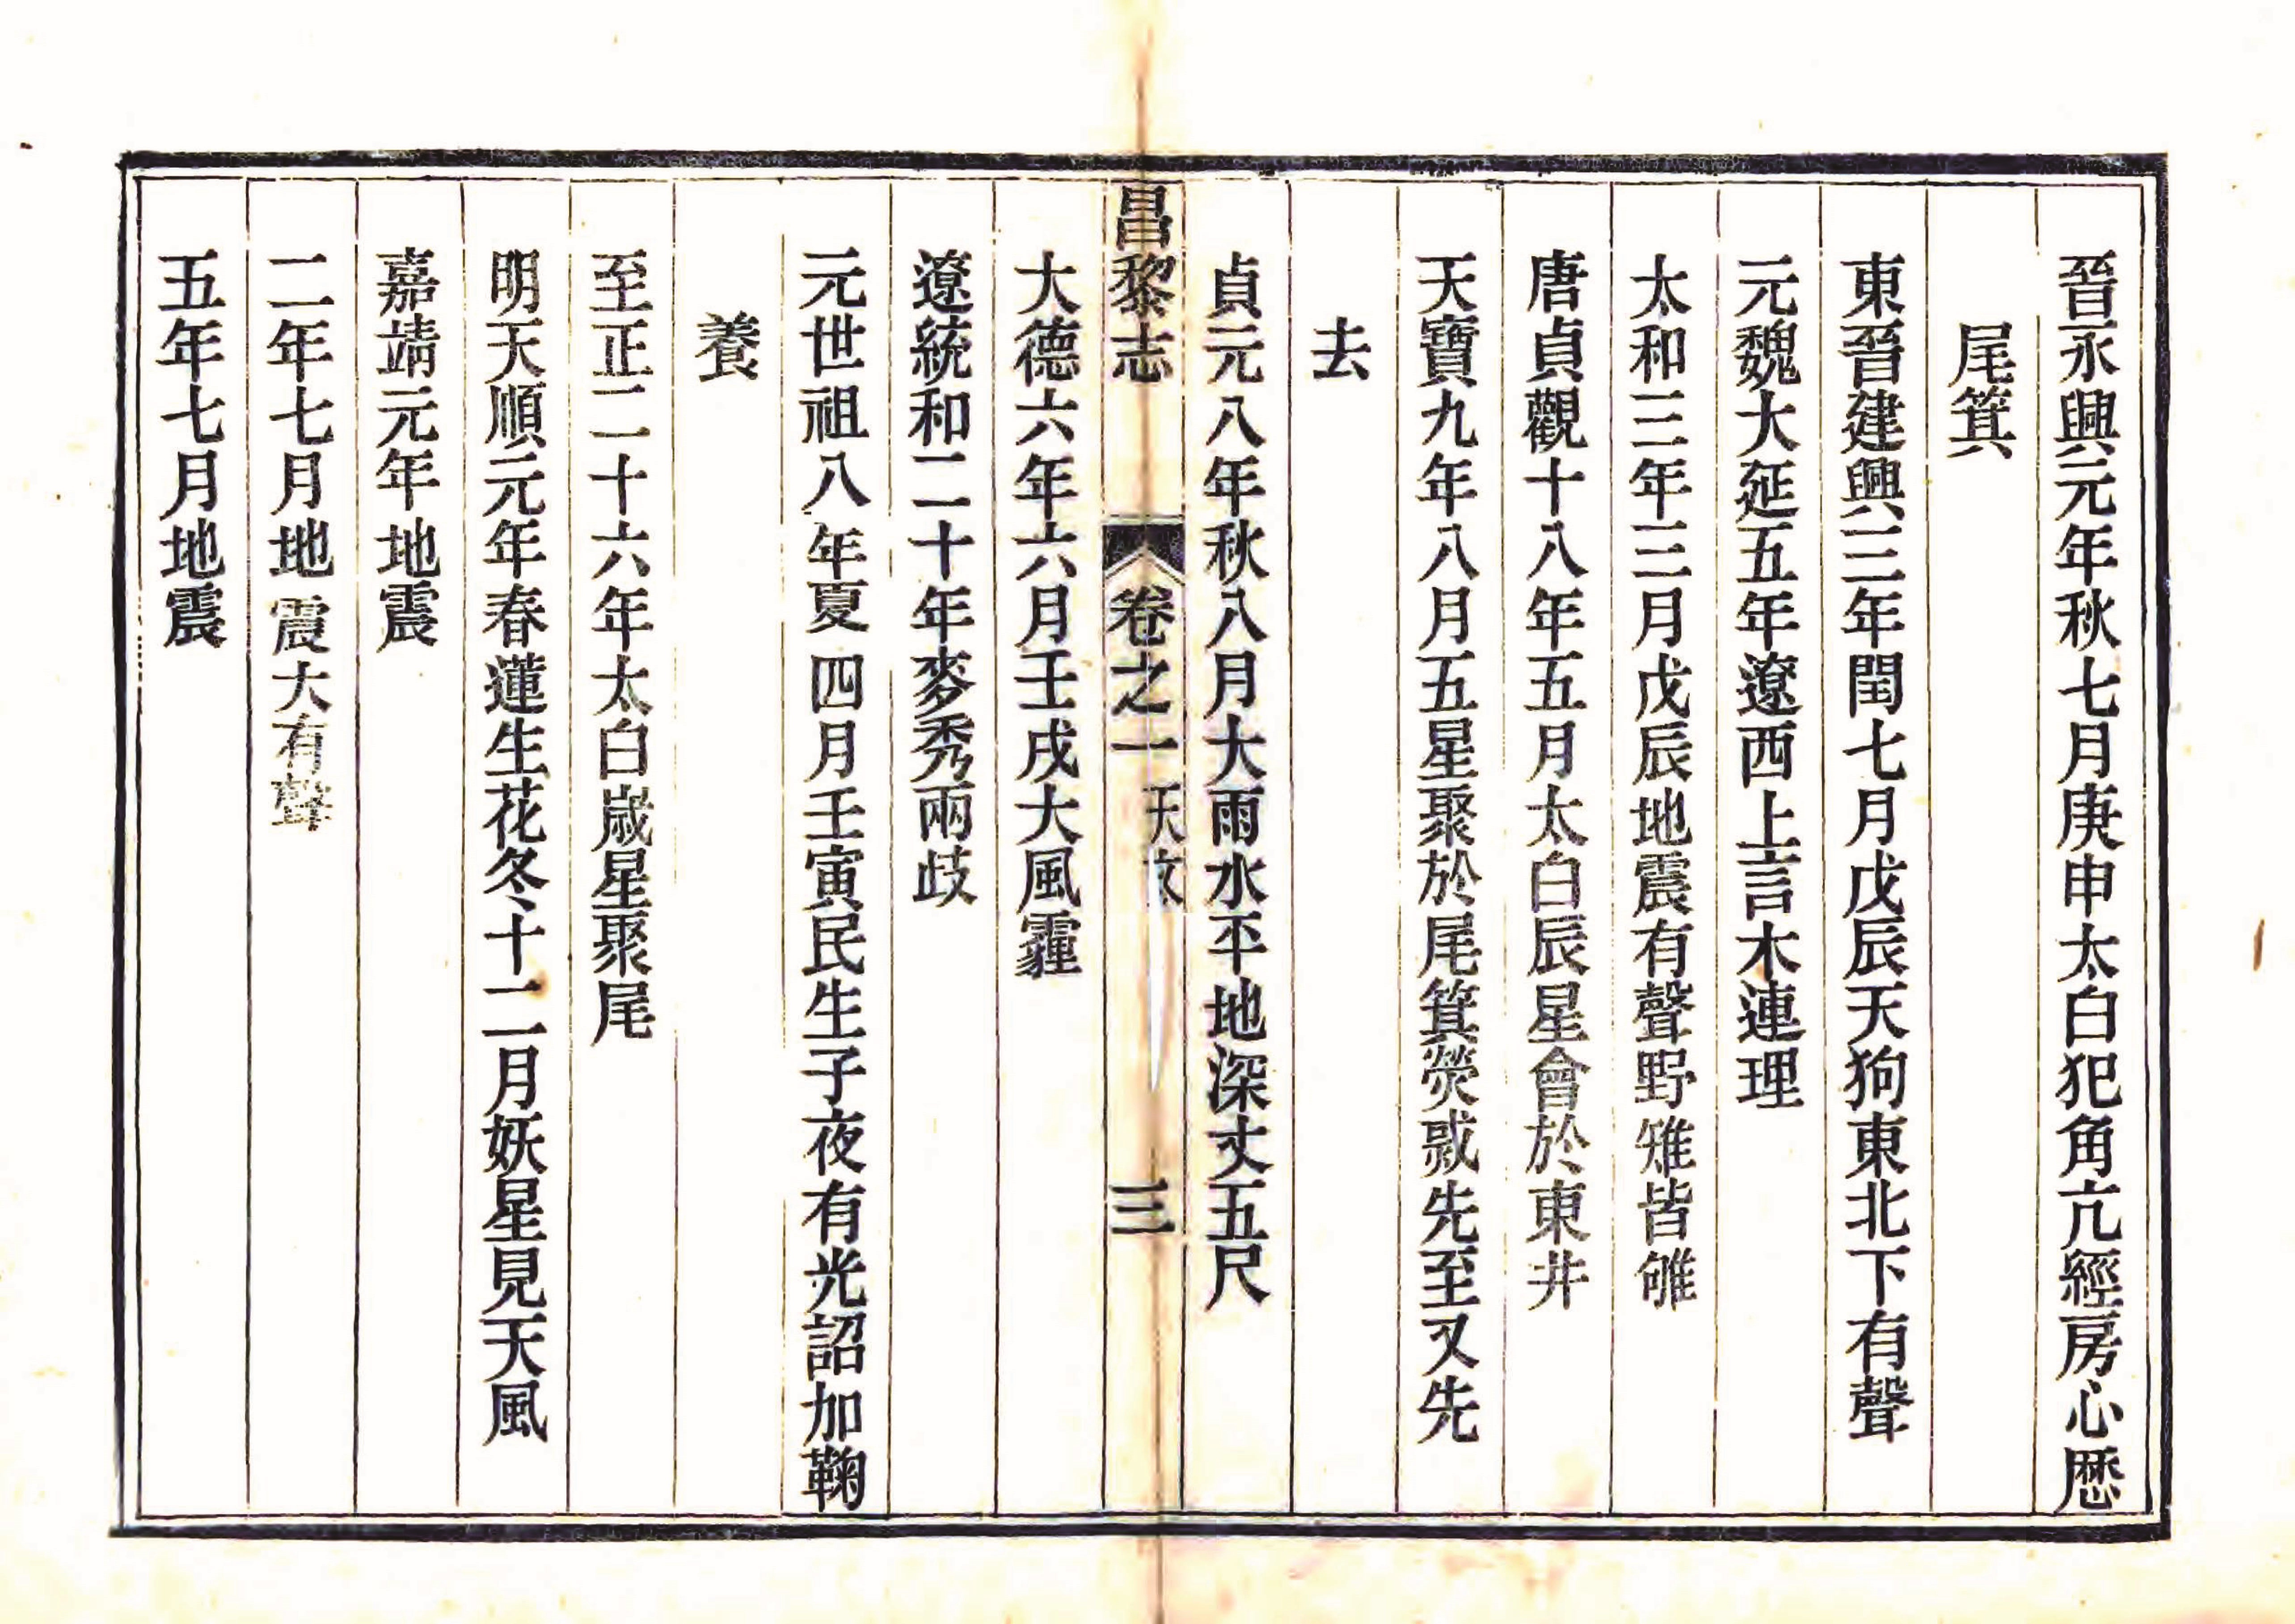 晉永興元年秋七月庚申太白犯角亢經房心歷
尾箕
東晉建興三年閏七月戊辰天狗東北下有聲
元魏大延五年遼西上言木連理
太和三年三月戊辰地震有聲野雉皆雊
唐貞觀十八年五月太白辰星會於東井
天寶九年八月五星聚於尾箕熒惑先至又先
去
貞元八年秋八月大雨水平地深丈五尺
昌黎志 卷之一 天文 三
大德六年六月壬戌大風霾
遼統和二十年麥秀兩歧
元世祖八年夏四月壬寅民生子夜有光詔加鞠
養
至正二十六年太白歲星聚尾
明天順元年春蓮生花冬十二月妖星見天風
嘉靖元年地震
二年七月地震大有聲
五年七月地震